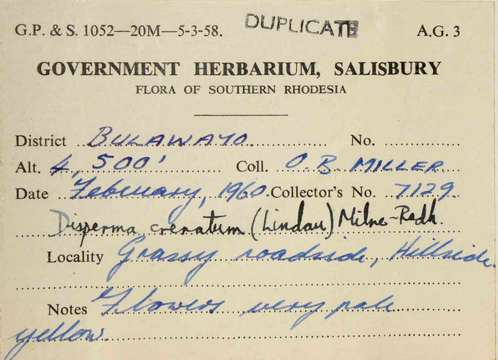 G.P. & S. 1052—20M—5-3-58. DUPLICATE A.G. 3
GOVERNMENT HERBARIUM, SALISBURY
FLORA OF SOUTHERN RHODESIA
District BULAWAYO No.
Alt. 4,500' Coll. O.B. MILLER
Date February, 1960. Collector's No. 7129
Disperma crenatum (Lindau) Milne-Redh.
Locality Grassy roadside, Hillside.
Notes Flowers very pale
yellow.